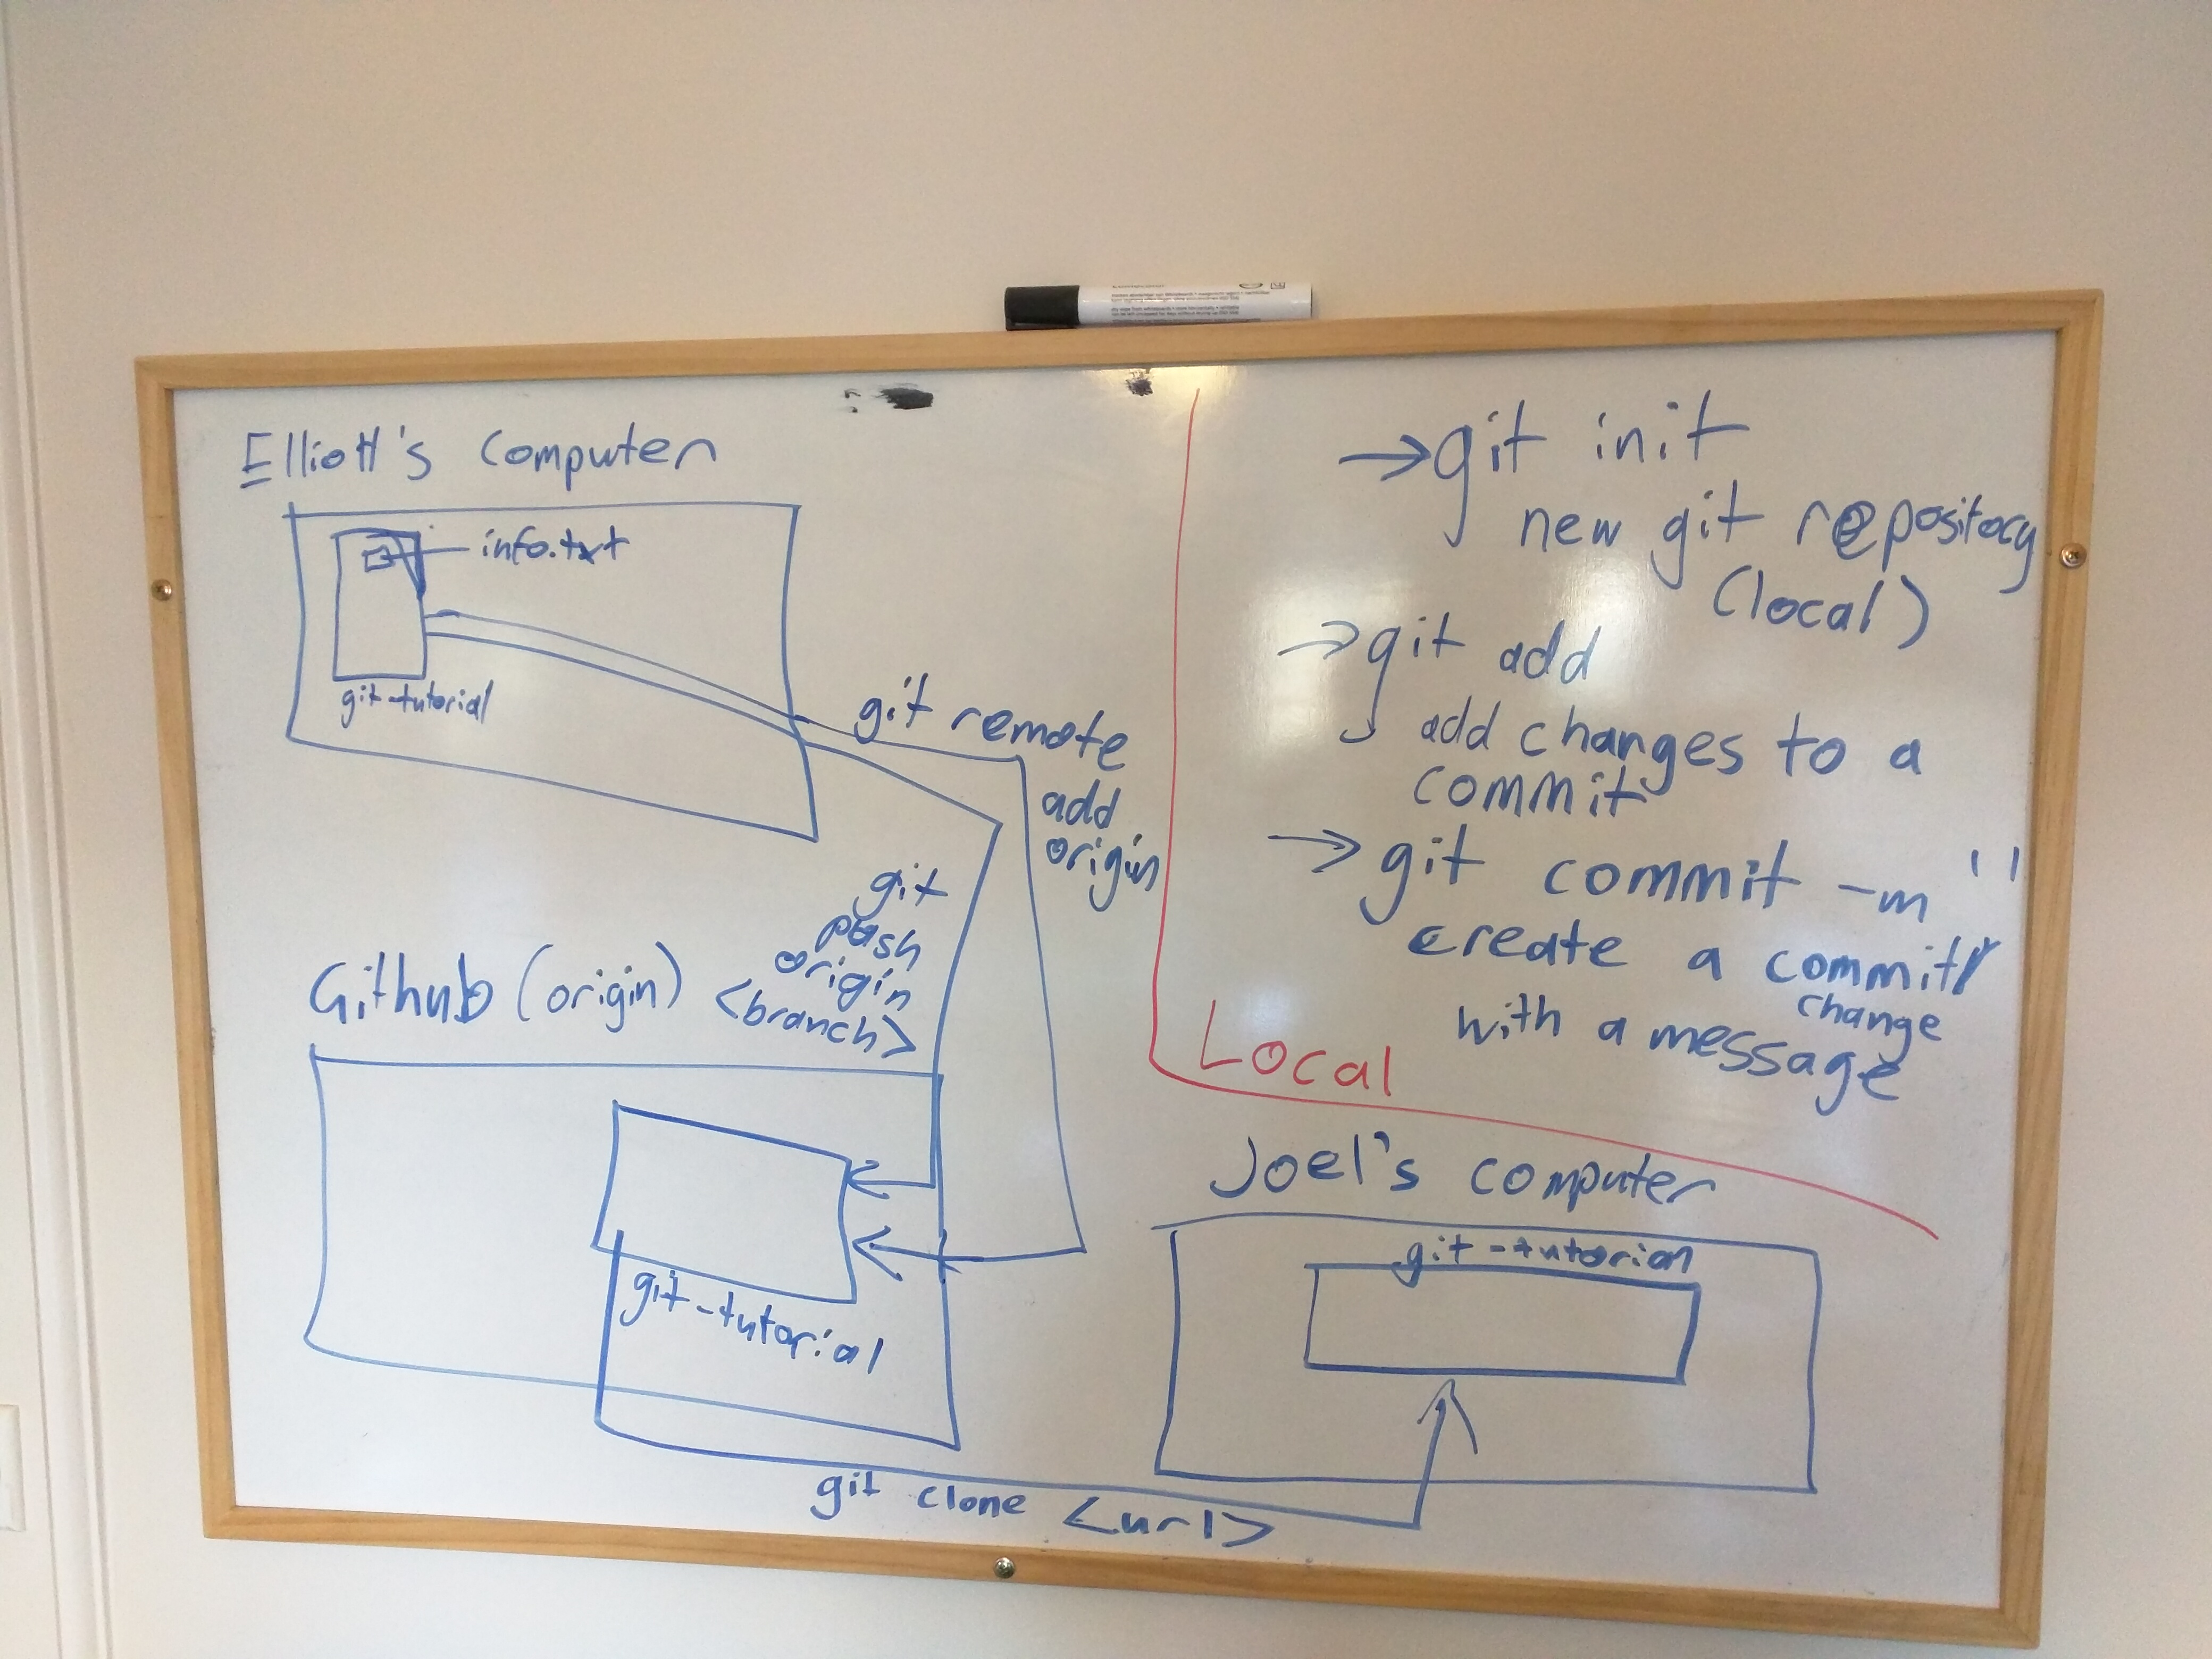 Elliott's computer
info.txt
git-tutorial
git remote
add
origin
git
push
origin
<branch>
Github (origin)
git-tutorial
git clone <url>
→git init
new git repository
(local)
→git add
add changes to a
commit
→git commit -m ''
create a commit
change
with a message
Local
Joel's computer
git-tutorial